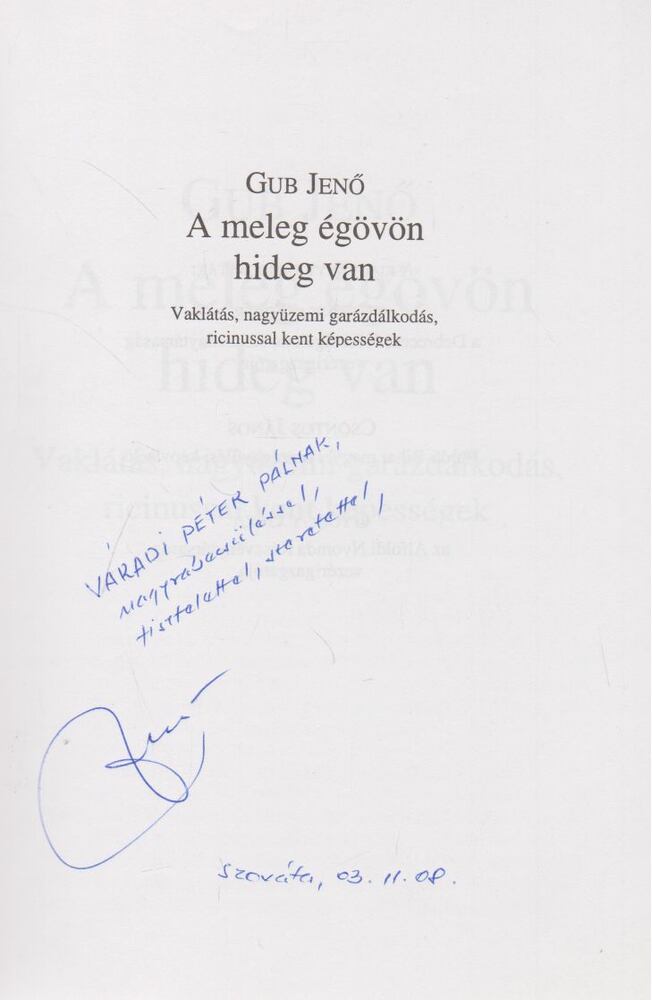 GUB JENŐ
A meleg égövön
hideg van
Vaklátás, nagyüzemi garázdálkodás,
ricinussal kent képességek
VÁRADI PÉTER PÁLNAK,
nagyrabecsüléssel,
tisztelettel, szeretettel,
Szováta, 03. 11. 08.